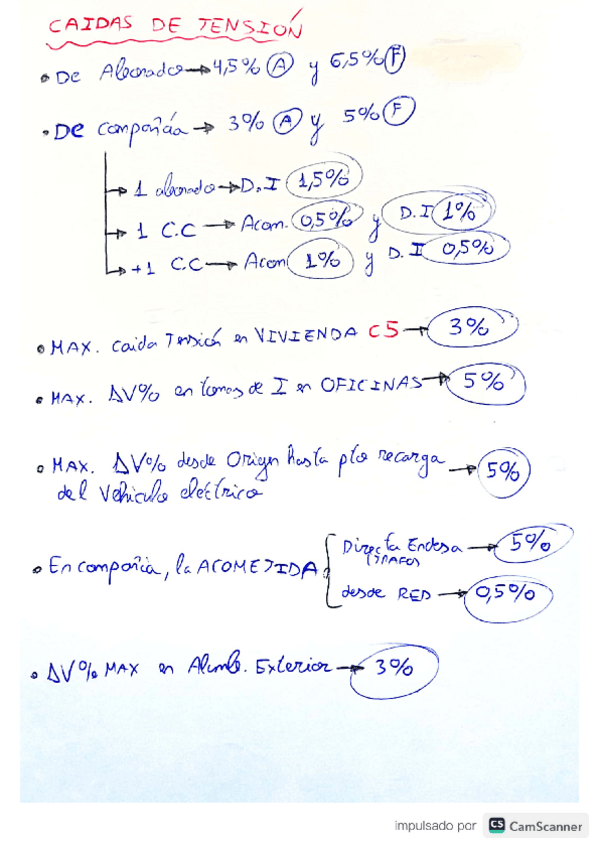 CAIDAS DE TENSIÓN
• De Abonado → 4,5% (A) y 6,5% (F)
• De compañía → 3% (A) y 5% (F)
→ 1 abonado → D.I 1,5%
→ 1 C.C → Acom. 0,5% y D.I 1%
→ +1 C.C → Acom 1% y D.I 0,5%
• MAX. Caida Tensión en VIVIENDA C5 → 3%
• MAX. ΔV% en tomas de I en OFICINAS → 5%
• MAX. ΔV% desde Origen hasta pto recarga → 5%
del Vehiculo eléctrico
• En compañia, la ACOMETIDA:
Directa Endesa → 5%
(TRAFO)
desde RED → 0,5%
• ΔV% MAX en Alumb. Exterior → 3%
impulsado por CS CamScanner